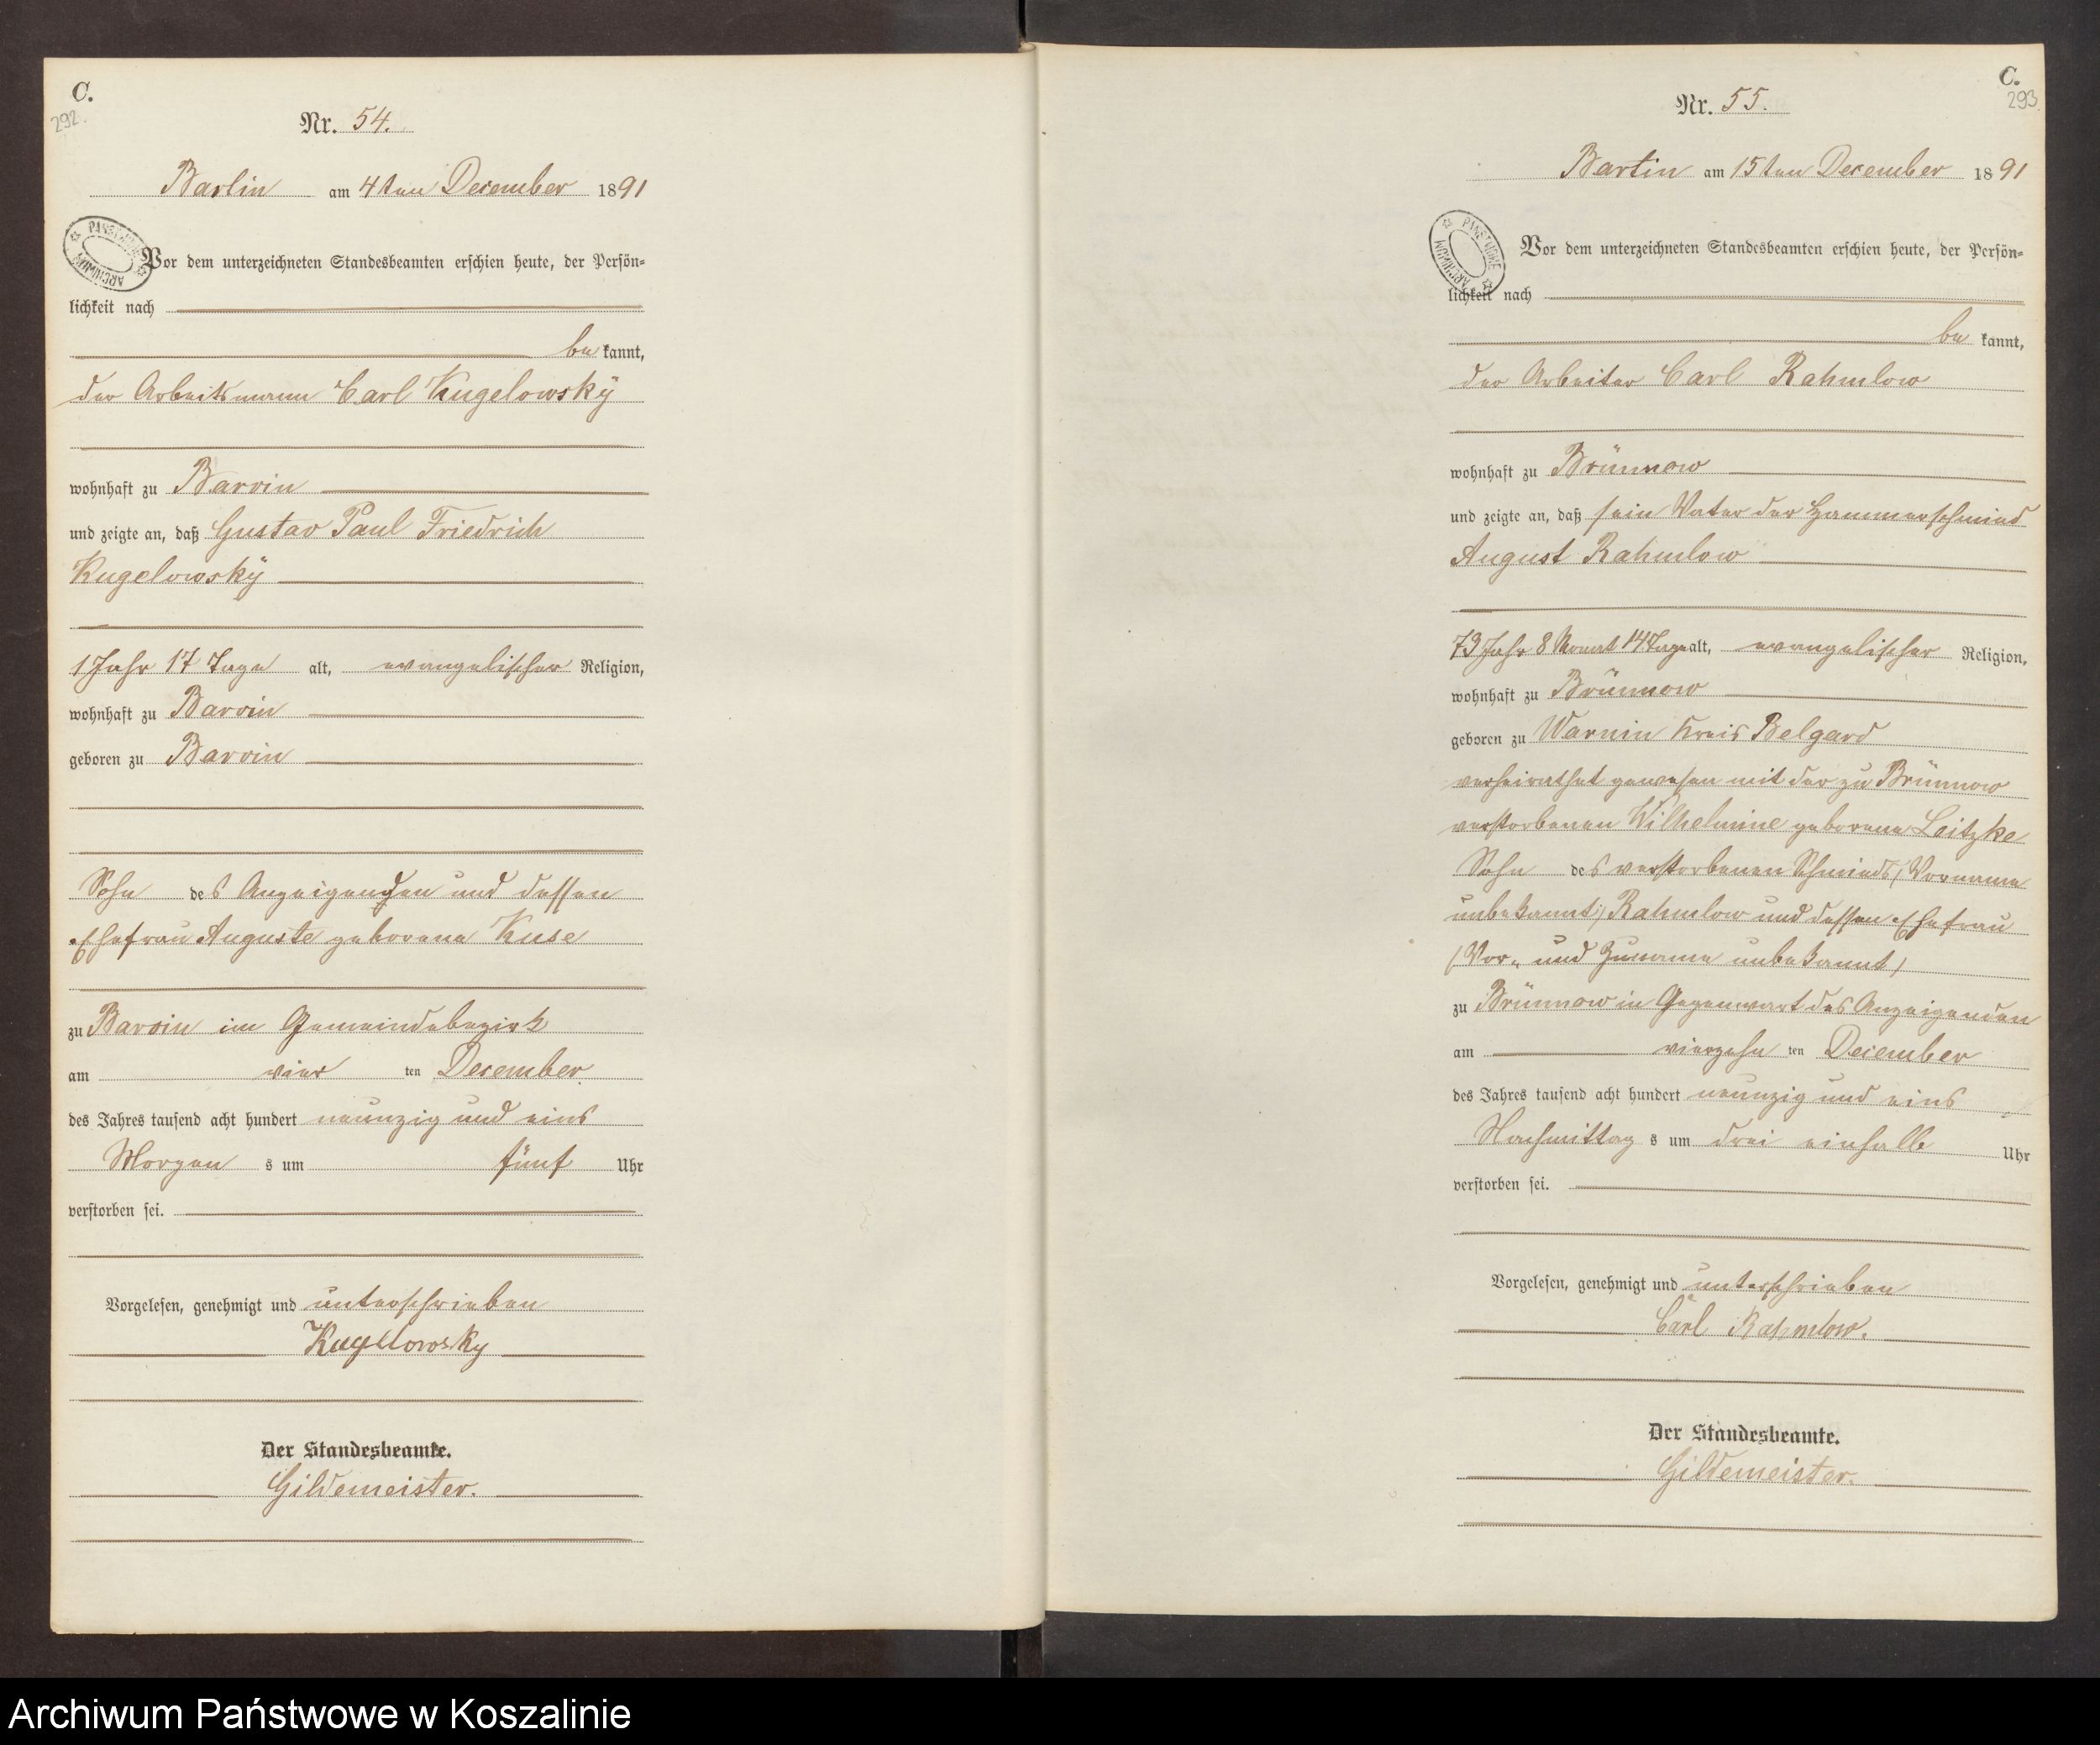 C.
292.
Nr. 54.
Bartin am 4ten December 1891
PAŃSTWOWE
ARCHIWUM
Vor dem unterzeichneten Standesbeamten erschien heute, der Persön=
lichkeit nach
be kannt,
der Arbeitsmann Carl Kugelowskÿ
wohnhaft zu Barvin
und zeigte an, daß Gustav Paul Friedrich
Kugelowskÿ
1 Jahr 17 Tage alt, evangelischer Religion,
wohnhaft zu Barvin
geboren zu Barvin
Sohn des Anzeigenden und dessen
Ehefrau Auguste geborene Kuse
zu Barvin im Gemeindebezirk
am vier ten December
des Jahres tausend acht hundert neunzig und eins
Morgen s um fünf Uhr
verstorben sei.
Vorgelesen, genehmigt und unterschrieben
Kugelowsky
Der Standesbeamte.
Gildemeister.
C.
293.
Nr. 55.
Bartin am 15ten December 1891
PAŃSTWOWE
ARCHIWUM
Vor dem unterzeichneten Standesbeamten erschien heute, der Persön=
lichkeit nach
be kannt,
der Arbeiter Carl Rahmlow
wohnhaft zu Brünnow
und zeigte an, daß sein Vater der Hammerschmied
August Rahmlow
73 Jahr 8 Monat 14 Tage alt, evangelischer Religion,
wohnhaft zu Brünnow
geboren zu Warnin Kreis Belgard
verheirathet gewesen mit der zu Brünnow
verstorbenen Wilhelmine geborene Leitzke
Sohn des verstorbenen Schmieds (Vorname
unbekannt) Rahmlow und dessen Ehefrau
(Vor- und Zuname unbekannt)
zu Brünnow in Gegenwart des Anzeigenden
am vierzehn ten December
des Jahres tausend acht hundert neunzig und eins
Nachmittag s um drei einhalb Uhr
verstorben sei.
Vorgelesen, genehmigt und unterschrieben
Carl Rahmlow.
Der Standesbeamte.
Gildemeister.
Archiwum Państwowe w Koszalinie